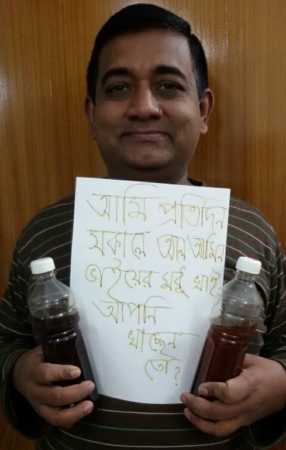 আমি প্রতিদিন
সকালে আল আমিন
ভাইয়ের মধু খাই
আপনি
খাচ্ছেন
তো?